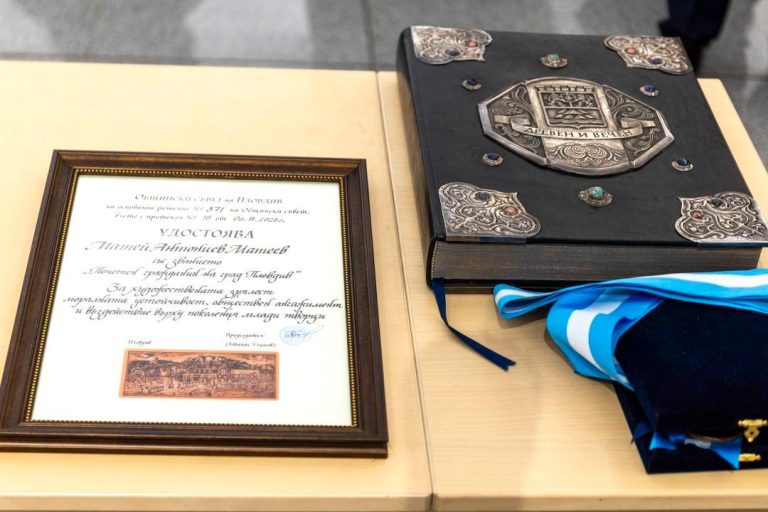 Общински съвет на Пловдив
на основание решение № 371 на Общински съвет,
взето с протокол № 18 от 06.11.2025г.
УДОСТОЯВА
Матей Антониев Матеев
със званието
„Почетен гражданин на град Пловдив"
За художествената зрялост
моралната устойчивост, обществен ангажимент
и въздействие върху поколения млади творци
Пловдив
Председател:
ДРЕВЕН И ВЕЧЕН